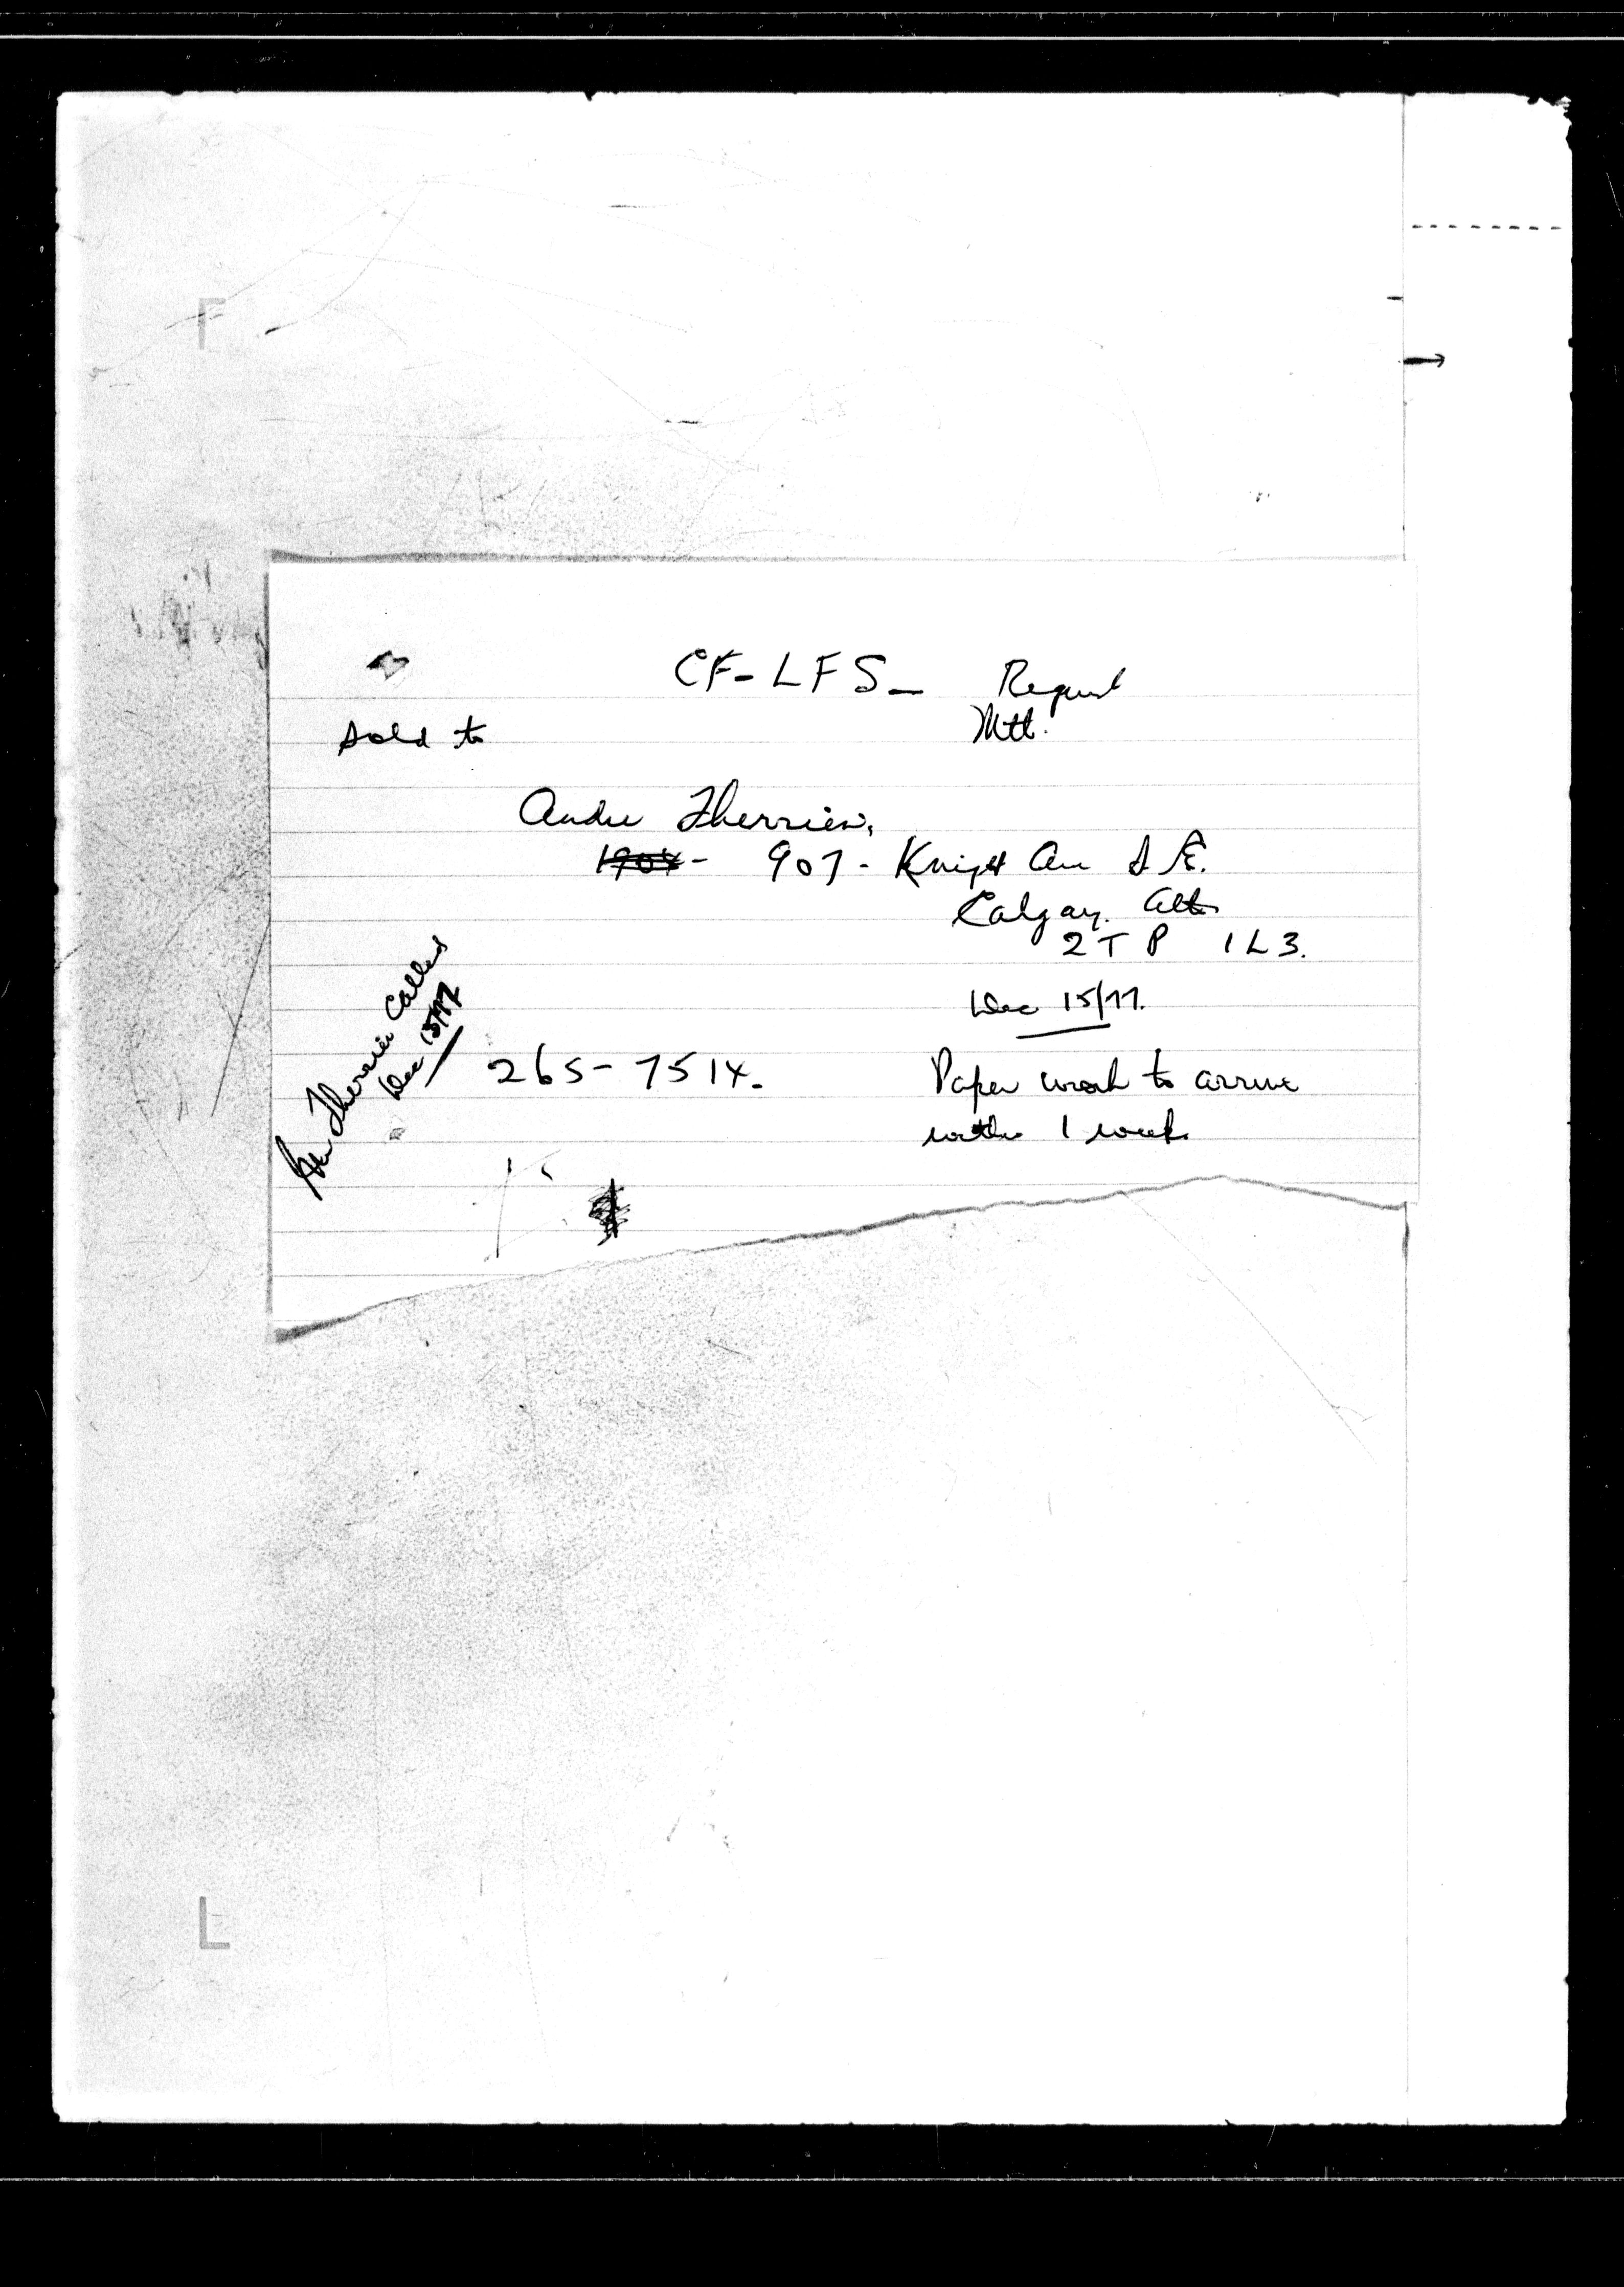 CF-LFS-
Mtl.
sold to
Andre Therrien,
1904 - 907 - Knight Ave S E.
Calgary. Alta
2TP 1L3.
Dec 15/77.
Therrien Called
Dec 15/77
265-7514.
Paper work to arrive
within 1 week.
F
L